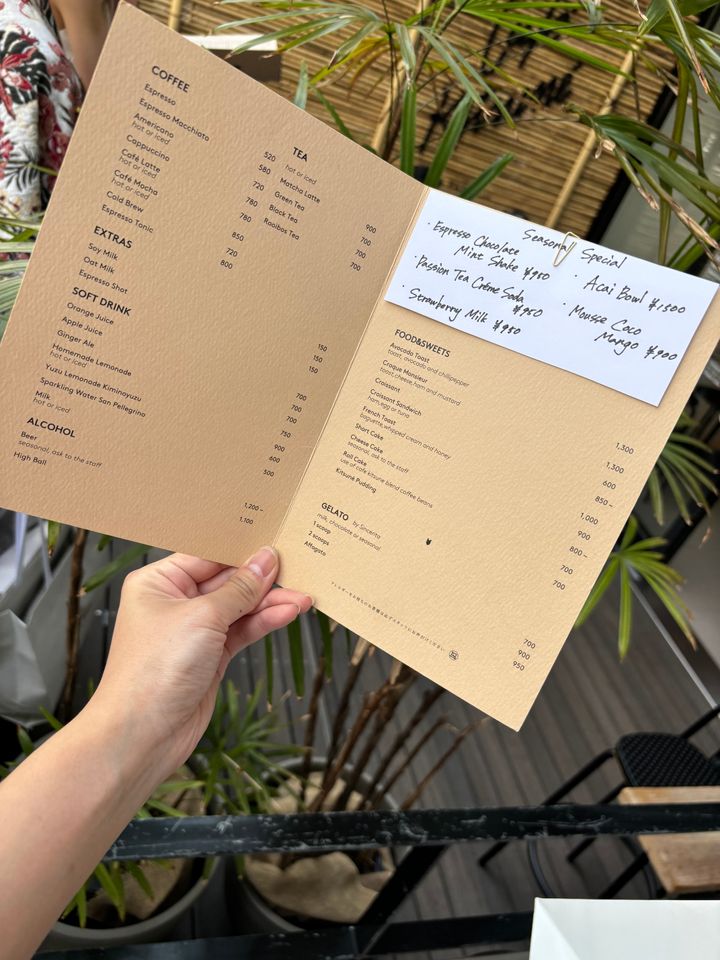 COFFEE
Espresso 520
Espresso Macchiato 580
Americano 720
hot or iced
Cappuccino 780
Café Latte 780
hot or iced
Café Mocha 850
hot or iced
Cold Brew 720
Espresso Tonic 800
EXTRAS
Soy Milk 150
Oat Milk 150
Espresso Shot 150
SOFT DRINK
Orange Juice 700
Apple Juice 700
Ginger Ale 700
Homemade Lemonade 750
hot or iced
Yuzu Lemonade Kiminoyuzu 900
Sparkling Water San Pellegrino 600
Milk 500
hot or iced
ALCOHOL
Beer 1,200~
seasonal, ask to the staff
High Ball 1,100
TEA hot or iced
Matcha Latte 900
Green Tea 700
Black Tea 700
Rooibos Tea 700
Seasonal Special
・Espresso Chocolate
Mint Shake ¥950
・Passion Tea Crème Soda
¥950
・Strawberry Milk ¥950
・Acai Bowl ¥1,500
・Mousse Coco
Mango ¥900
FOOD&SWEETS
Avocado Toast 1,300
toast, avocado and chillipepper
Croque Monsieur 1,300
toast,cheese,ham and mustard
Croissant 600
Croissant Sandwich 850~
ham,egg or tuna
French Toast 1,000
baguette,whipped cream and honey
Short Cake 900
Cheese Cake 800~
seasonal, ask to the staff
Roll Cake 700
use of cafe kitsune blend coffee beans
Kitsuné Pudding 700
GELATO by Sincerita
milk, chocolate or seasonal
1 scoop 700
2 scoops 900
Affogato 950